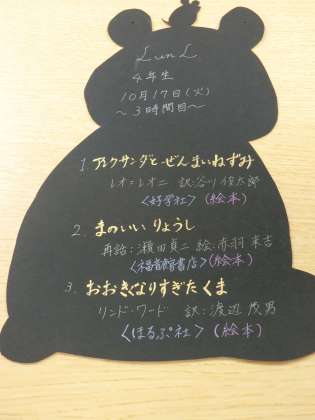 LunL
4年生
10月17日(火)
〜3時間目〜
1. アレクサンダとぜんまいねずみ
レオ=レオニ 訳:谷川 俊太郎
<好学社>(絵本)
2. まのいいりょうし
再話:瀬田貞二 絵:赤羽 末吉
<福音館書店>(絵本)
3. おおきくなりすぎたくま
リンド・ワード 訳:渡辺 茂男
<ほるぷ社>(絵本)